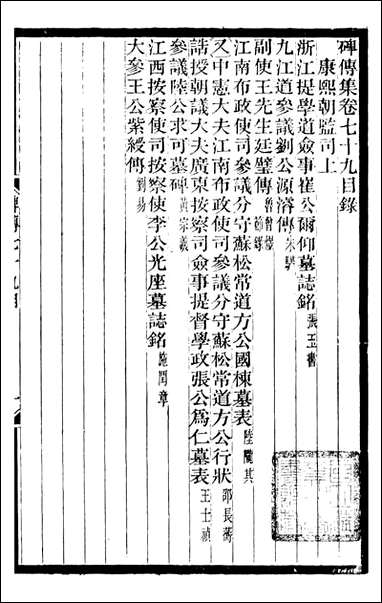 碑傳集卷七十九目錄
康熙朝監司上
浙江提學道僉事崔公爾仰墓誌銘 張玉書
九江道參議劉公源濬傳 朱騏
副使王先生廷璧傳
江南布政使司參議分守蘇松常道方公國棟墓表 陸隴其
又中憲大夫江南布政使司參議分守蘇松常道方公行狀 邵長蘅
誥授朝議大夫廣東按察司僉事提督學政張公爲仁墓表 王士禎
參議陸公求可墓碑 黃宗羲
江西按察使司按察使李公光座墓誌銘 施閏章
大參王公紫綬傳 劉榛